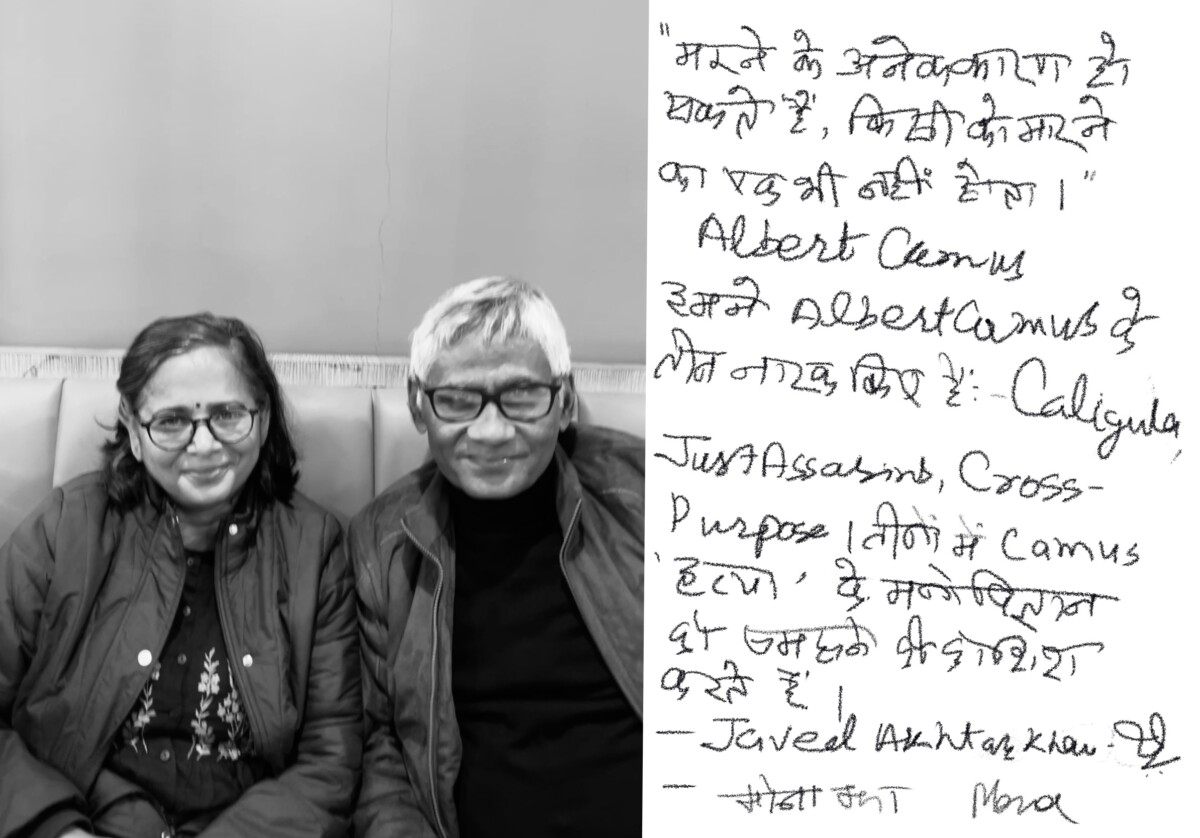 "मरने के अनेक कारण हो
सकते हैं, किसी को मारने
का एक भी नहीं होता।"
Albert Camus
हमने Albert Camus के
तीन नाटक किए हैं:- Caligula,
Just Assasins, Cross-
Purpose। तीनों में Camus
'हत्या' के मनोविज्ञान
को समझने की कोशिश
करते हैं।
- Javed Akhtar Khan
- मोना झा Mona